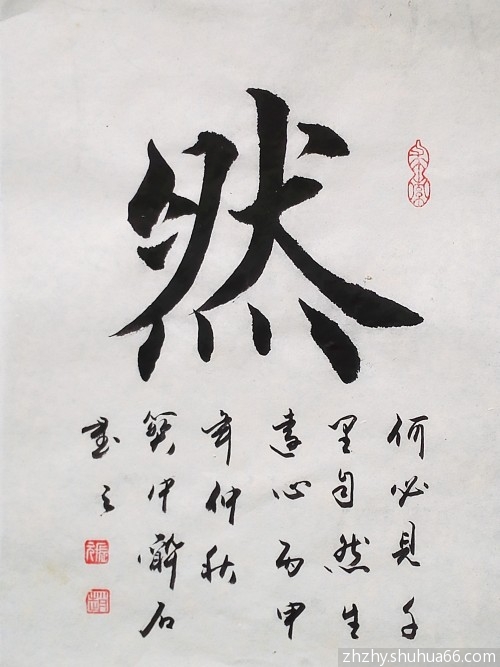 然
何必見千
里自然生
遠心丙申
年仲秋
冀中癖石
書之
zhzhy.shuhua66.com